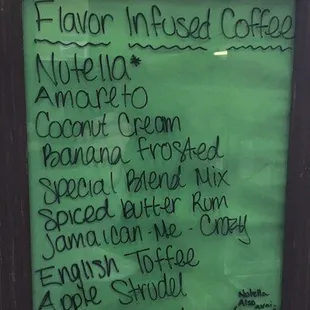 Flavor Infused Coffee
Nutella*
Amareto
Coconut Cream
Banana Frosted
Special Blend Mix
Spiced Butter Rum
Jamaican-Me-Crazy
English Toffee
Apple Strudel
Nutella
Also